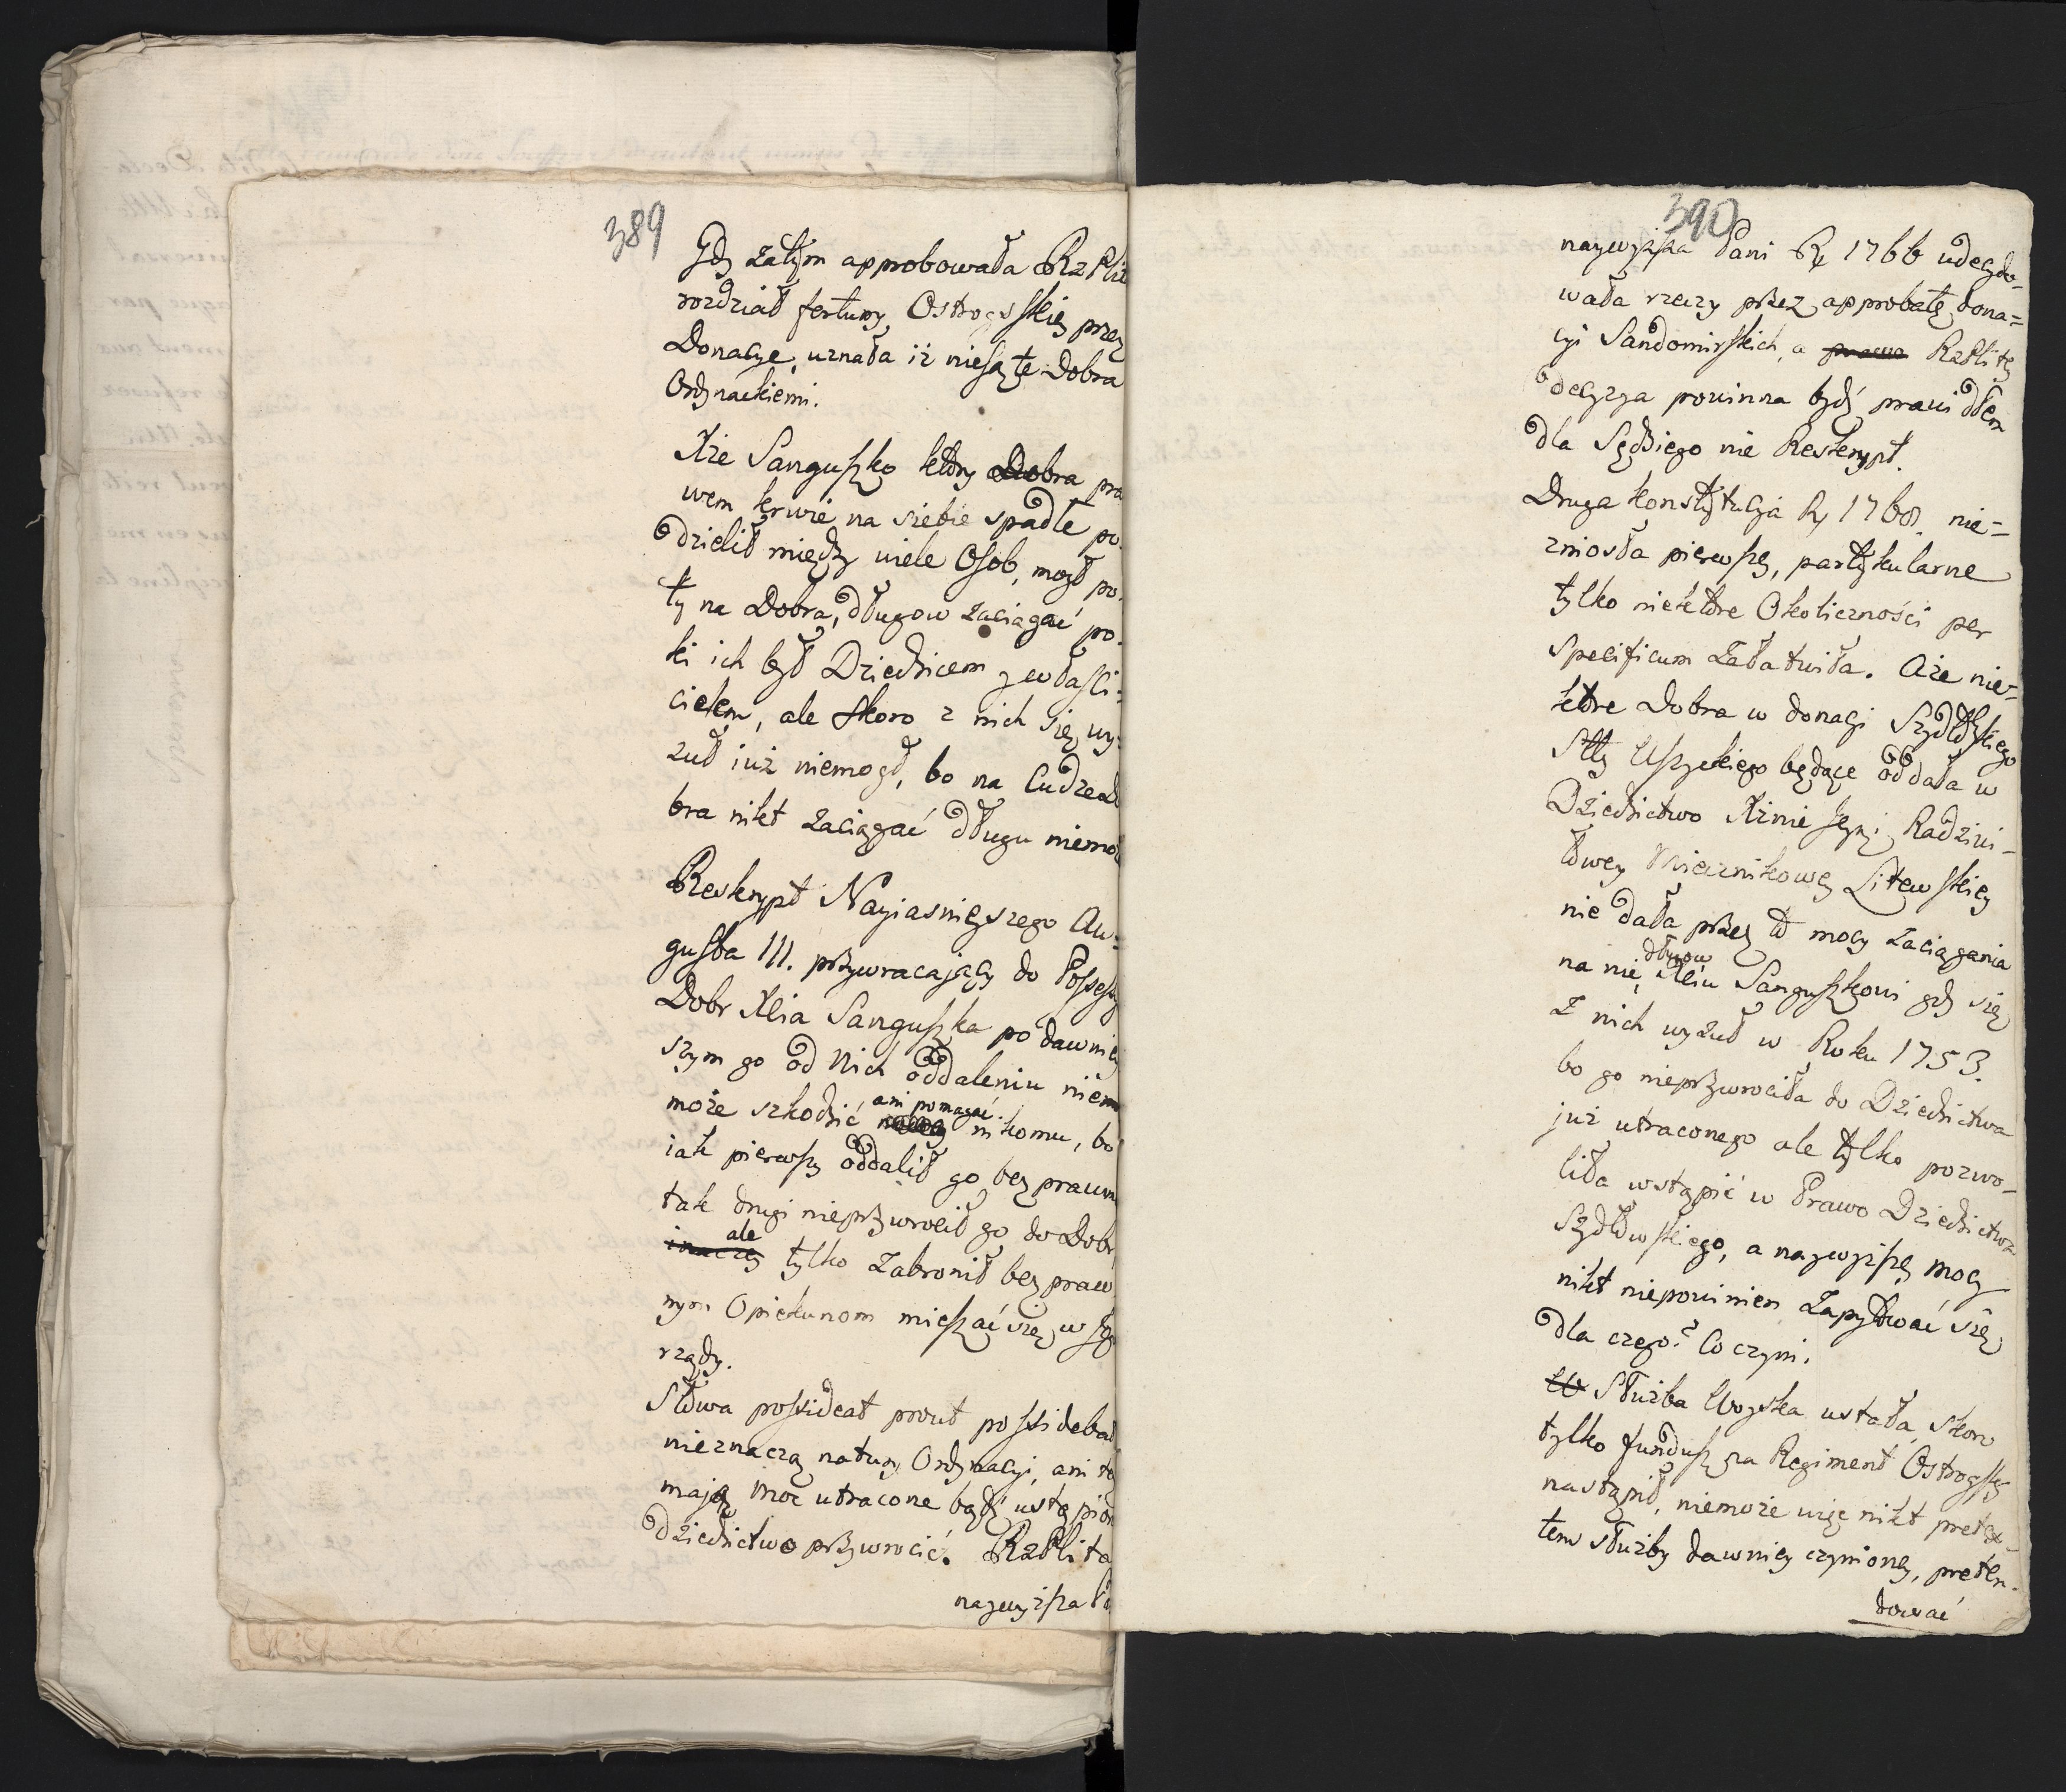 389
Gdy zatym approbowała RzPlit
rozdział fortuny Ostrogskiey przez
Donacye, uznała iż niesą te Dobra
Ordynackiemi.
Xże Sanguszko ktory Dobra pra
wem krwie na siebie spadłe po-
dzielił między wiele Osob, mogł po-
ty na Dobra, długow zaciągać po-
ki ich był Dziedzicem y własci-
cielem, ale skoro z nich się wy-
zuł iuż niemogł, bo na Cudze Do
bra nikt zaciągać długu niemo
Reskrypt Nayiasnieyszego Au-
gusta III. przywracaiący do Possessy
Dobr Xcia Sanguszka po dawniey
szym go od Nich oddaleniu niem
może szkodzić ani pomagać nikomu, bo
iak pierwszy oddalił go bez prawn
tak drugi nieprzywrocił go do Dobr
inaczey ale tylko zabronił bez praw
nym Opiekunom mieszać się w Jego
rządy.
Słowa possideat prout possidebat
nieznaczą natury Ordynacyi, ani te
maią moc utracone bądź ustąpion
dziedzictwo przywrocić. RzPlita
naywyższa Pa
390
naywyższa Pani Rz 1766 udecydo-
wała rzeczy przez approbatę dona=
cyi Sandomirskich, a prawa RzPlitey
decyzya powinna bydź prawidłem
dla Sędziego nie Reskrypt.
Druga Konstytucja Ry 1768. nie=
zniosła pierwszey, partykularne
tylko niektore Okoliczności per
specificum załatwiła. Aże nie=
ktore Dobra w donacyi Szydłowskiego
Stty Uszyckiego będące oddała w
Dziedzictwo Xżnie Jeymci Radziwi-
łłowey Miecznikowey Litewskiey
nie dała przez to mocy zaciągania
na nie długow Xciu Sanguszkowi gdy się
z nich wyzuł w Roku 1753.
bo go nieprzywrociła do Dziedzictwa
już utraconego ale tylko pozwo-
liła wstąpić w Prawo Dziedzictwa
Szydłowskiego, a naywyższey mocy
nikt niepowinien zapytywać się
dla czego? Co czyni.
W Służba Woyska ustała, skoro
tylko fundusz na Regiment Ostrogsky
nastąpił, niemoże więc nikt pretex-
tem służby dawniey czynioney, preten-
dować